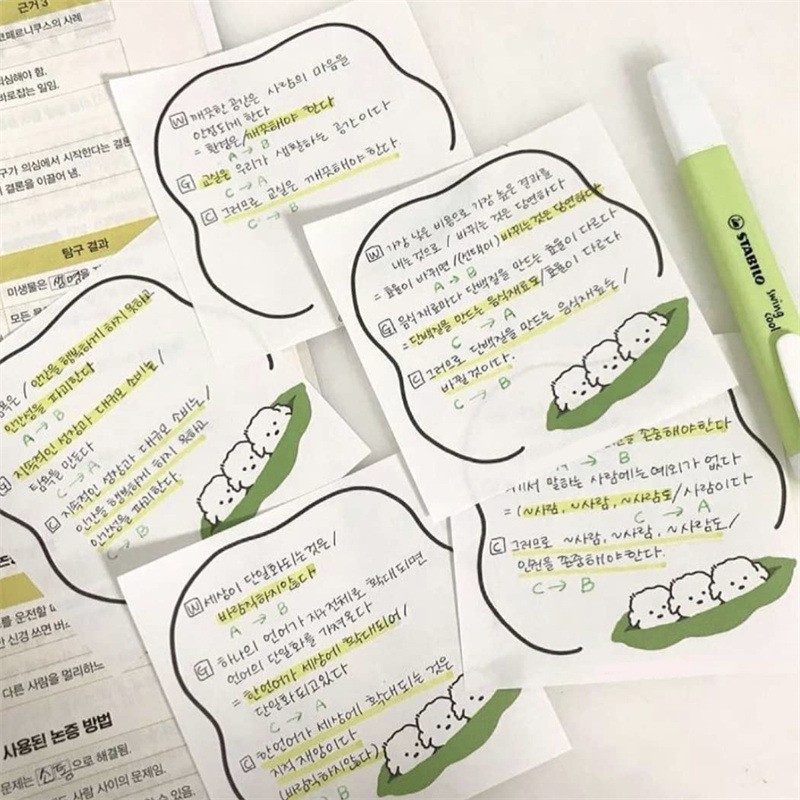 근거 3
코페르니쿠스의 사례
의심해야 함.
바로잡는 일임.
구가 의심에서 시작한다는 결론
결론을 이끌어 냄.
탐구 결과
미생물은
모든
W 깨끗한 공간은 사람의 마음을
안정되게 한다
= 환경은/깨끗해야 한다
A → B
G 교실은 우리가 생활하는 공간이다
C → A
C 그러므로 교실은 깨끗해야 한다.
C → B
W 가장 낮은 비용으로 가장 높은 결과를
내는 것으로 / 바뀌는 것은 당연하다
= 효율이 바뀌면/(선택이) 바뀌는 것은 당연하다
A → B
G 음식 재료마다 단백질을 만드는 효율이 다르다
= 단백질을 만드는 음식재료도/효율이 다르다.
C → A
C 그러므로 단백질을 만드는 음식재료는/
바뀔것이다.
C → B
탐욕은 / 인간을 행복하게 하지 못하고
인간성을 파괴한다
A → B
G 지속적인 성장과 대규모 소비는/
탐욕을 만든다
C → A
C 지속적인 성장과 대규모 소비는/
인간을 행복하게 하지 못하고
인간성을 파괴한다.
C → B
존중해야 한다
→ B
에서 말하는 사람에는 예외가 없다
= (~사람, ~사람, ~사람도/사람이다
C → A
C 그러므로 ~사람, ~사람, ~사람도/
인권을 존중해야 한다.
C → B
W 세상이 단일화되는것은/
바람직하지않다
A → B
G 하나의 언어가 지구전체로 확대되면
언어의 단일화를 가져온다
= 한언어가 세상에 확대되어/
단일화되고있다
C → A
C 한언어가 세상에 확대되는 것은
지적 재앙이다
(바람직하지않다)
→ B
STABILO
swing
cool
를 운전할
한 신경 쓰면
다른 사람을 멀리하느
사용된 논증 방법
문제는 소통으로 해결됨.
사람 사이의 문제임.
수 있음.